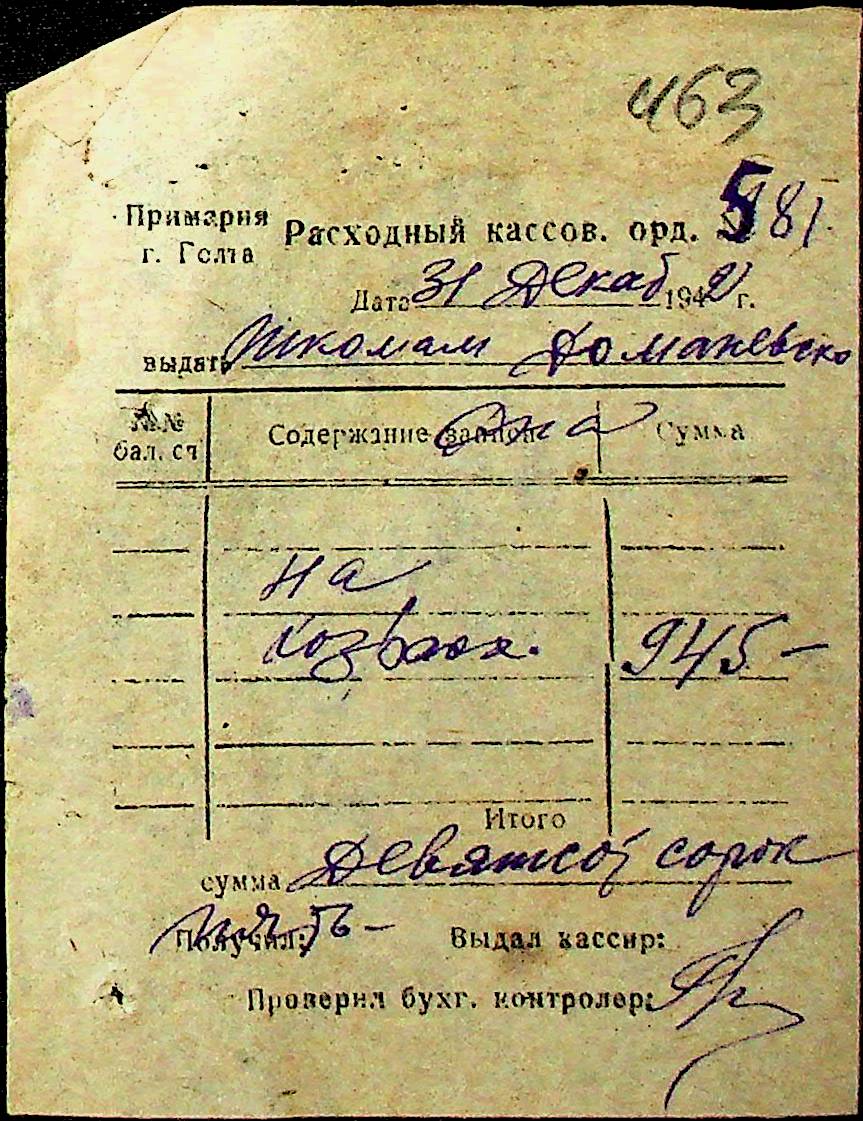 463
Примария
г. Голта
Расходный кассов. орд. № 581
Дата 31 Декаб 1942 г.
выдать Школам Доманевско
№№
бал. сч
Содержание записи
Сумма
на
945 –
Итого
сумма Девятсот сорок
пять –
Получил:
Выдал кассир:
Проверил бухг. контролер: